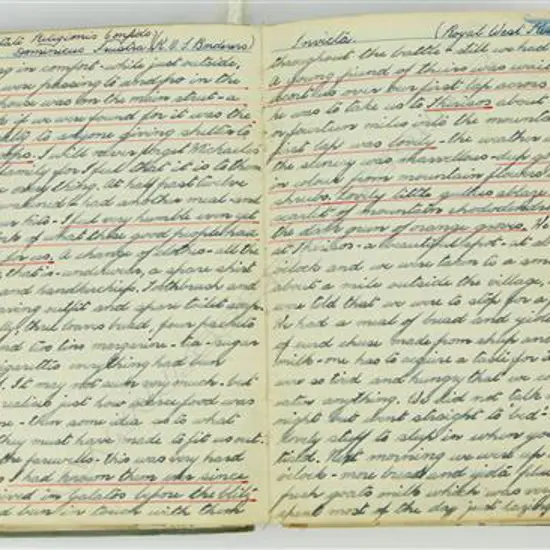 Religionis
(K.O.S Borderers)
ing in comfort - while just outside,
were passing to and fro in the
house was on the main street - a
if we were found for it was the
to anyone giving shelter to
I will never forget Michaelis
family for I feel that it is to them
everything. At half past twelve
had another meal - and
kits - I feel very humble even yet
of what these good people had
for us. A change of clothes - all the
that is - underwear, a spare shirt
and handkerchiefs. Toothbrush and
outfit and spare toilet soap.
three loaves bread, four packets
and two tins margarine - tea - sugar
cigarettes everything had been
It may not seem very much - but
realise just how scarce food was
- then some idea as to what
they must have made to fit us out.
the farewells - this was very hard
I had known them ever since
arrived in Galatos before the blitz
had been in touch with them
Invicta. (Royal West
throughout the battle - still we had
a young friend of theirs was
us over our first lap across
he was to take us to about
or fourteen miles into the
first lap was lovely - the weather
the scenery was marvellous - deep
in colour from mountain flowers
shrubs, lovely little gullies ablaze
scarlet of mountain
the dark green of orange groves.
at - a beautiful spot - at
o'clock and we were taken to a
about a mile outside the village,
were told that we were to stop for a
We had a meal of bread and
of curd cheese made from sheep and
milk - one has to acquire a taste for
were so tired and hungry that we
eaten anything. We did not talk
night but went straight to bed -
lovely stuff to sleep in when you
tired. Next morning we were up
o'clock - more bread and
fresh goats milk which was very
spent most of the day just lazing